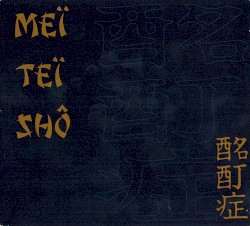 MEÏ
TEÏ
SHÔ
酩
酊
症